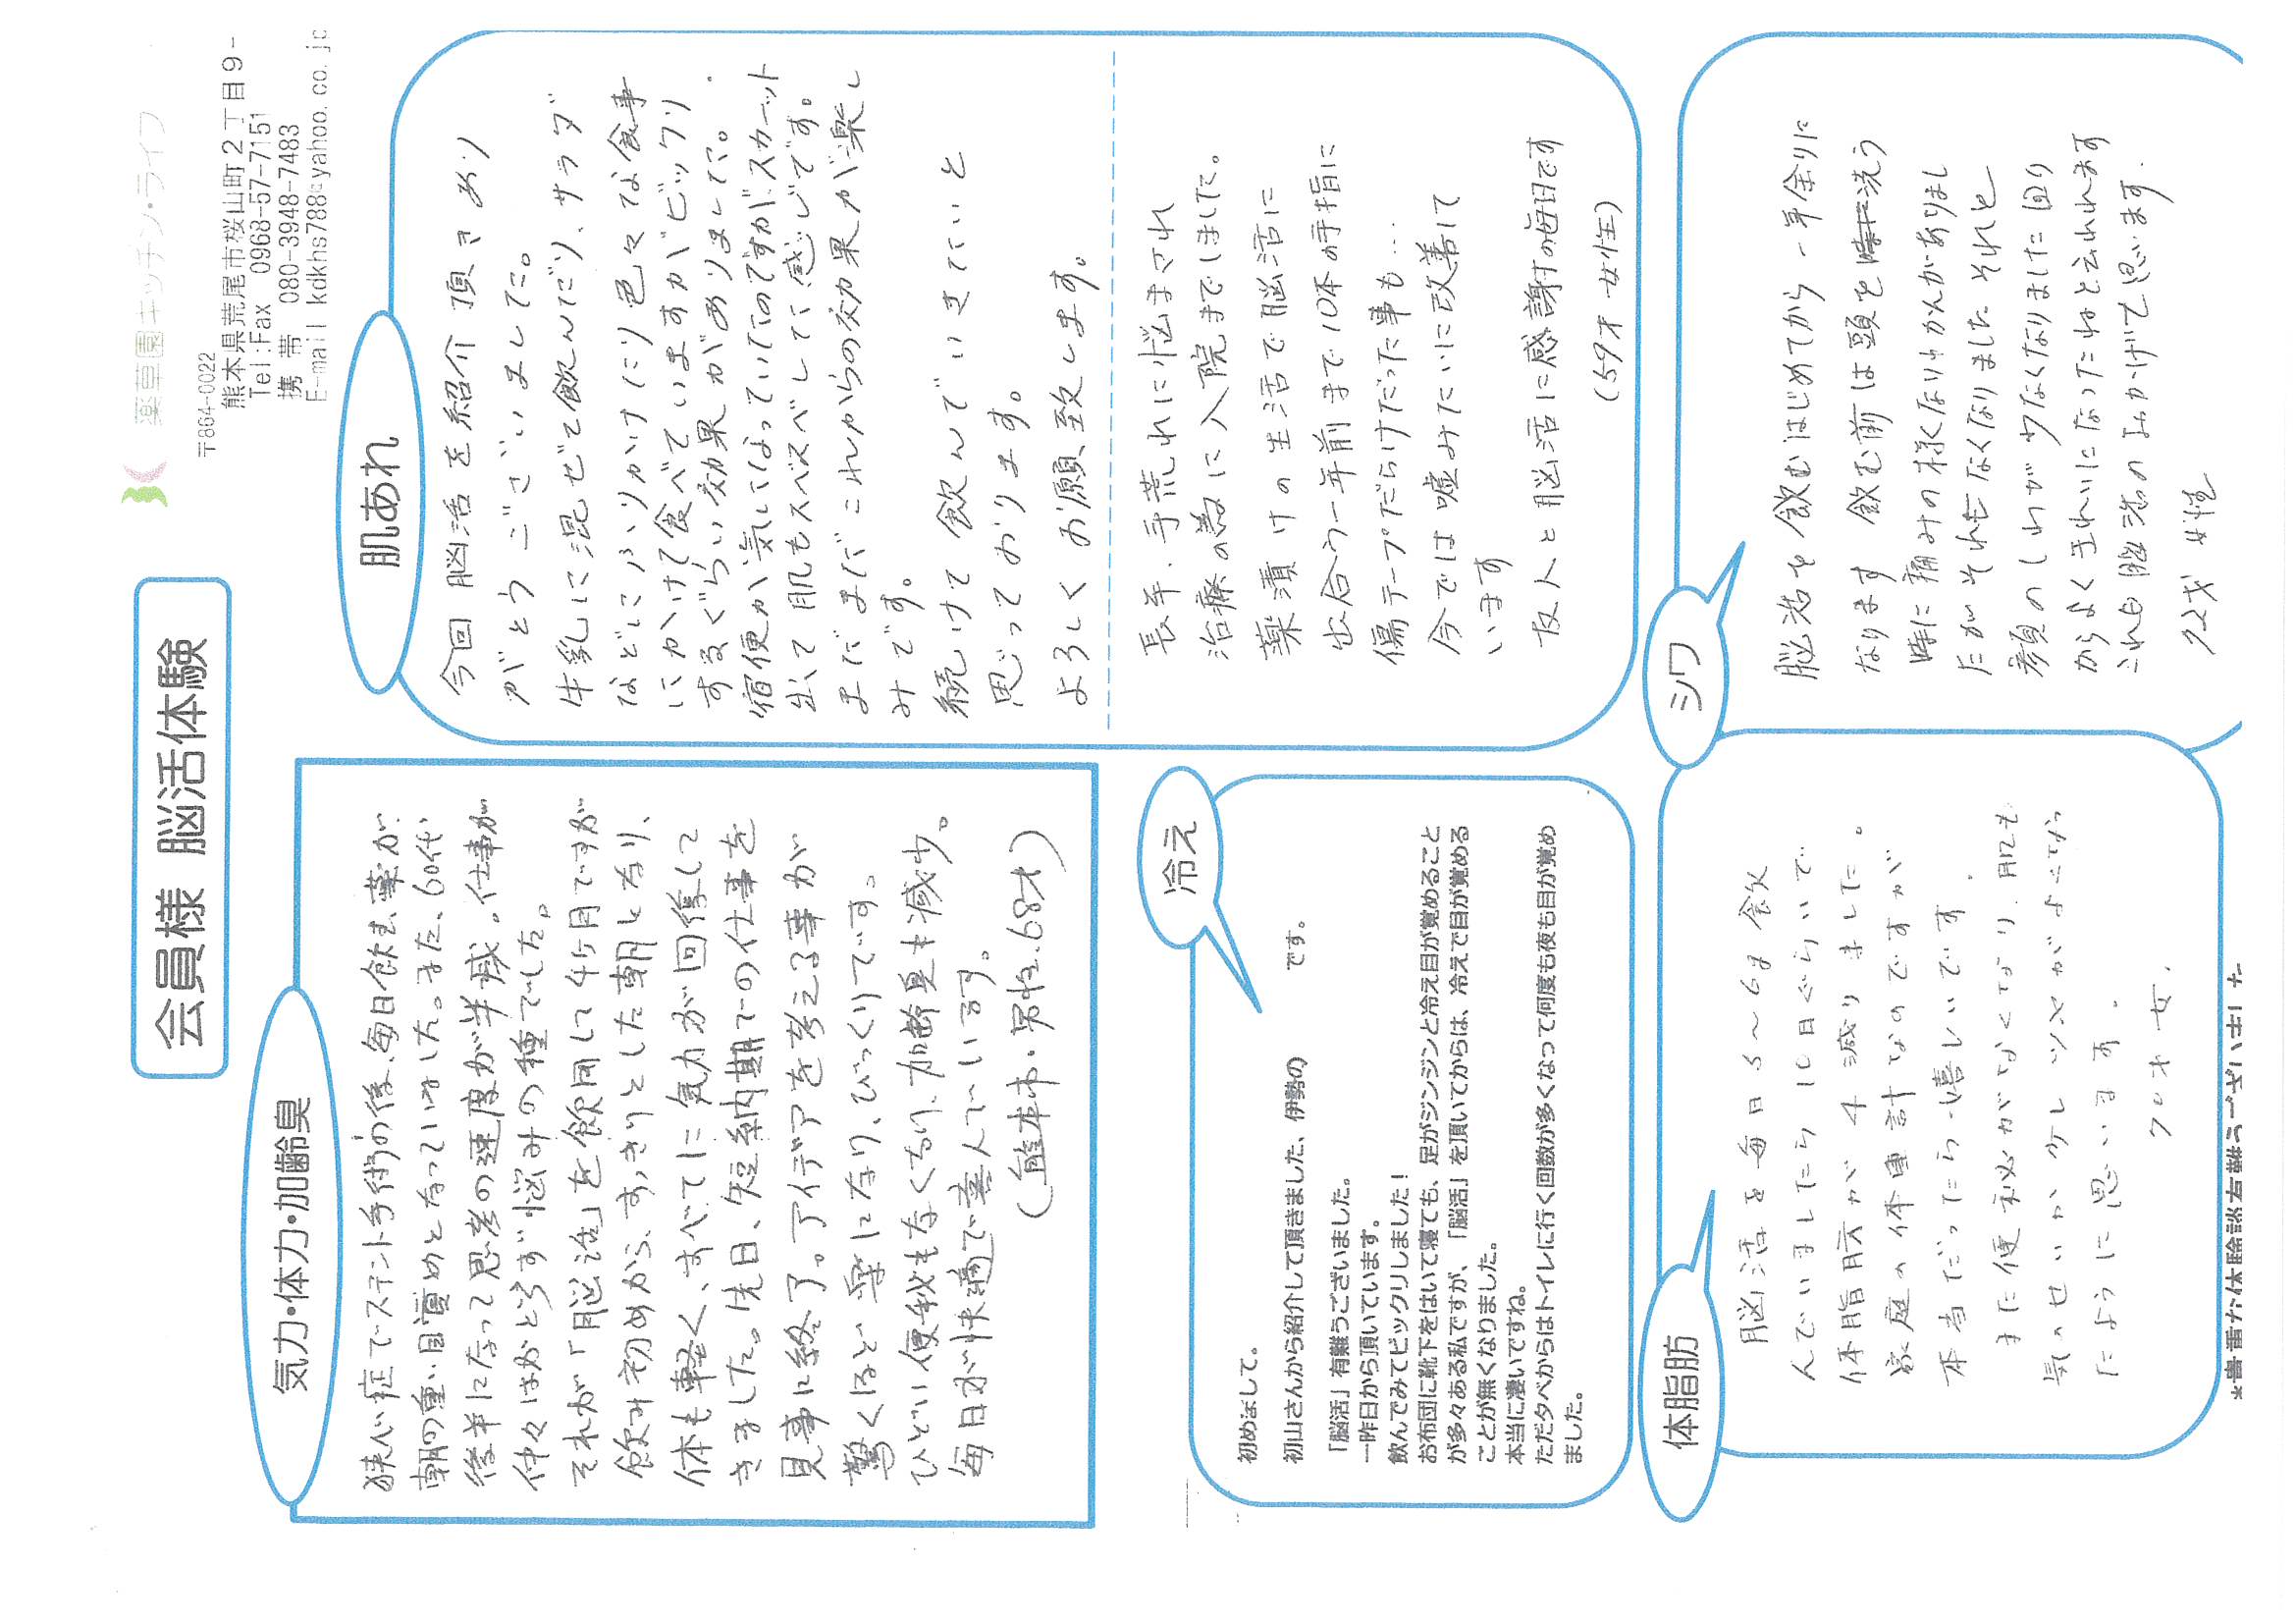 会員様 脳活体験
薬草園キッチン・ライフ
〒864-0022
熊本県荒尾市桜山町2丁目9-
Tel:Fax 0968-57-7151
携 帯 080-3948-7483
E-mail kdkhs788@yahoo.co.jp
気力・体力・加齢臭
狭心症でステント手術の後、毎日飲む薬が
朝の重い目覚めとなっていました。また、60代
後半になって思考の速度が半減。仕事が
仲々はかどらず悩みの種でした。
それが「脳活」を飲用して4ヶ月ですが
飲み初めから、すっきりとした朝となり、
体も軽く、すべてに気力が回復して
きました。先日、短納期での仕事を
見事に終了。アイデアを考える事が
驚くほど楽になり、びっくりです。
ひどい便秘もなくなり、加齢臭も減少。
毎日が快適で喜んでいます。
(熊本市・男性.68才)
肌あれ
今回 脳活を紹介頂きあり
がとうございました。
牛乳に混ぜて飲んだり、サラダ
などにふりかけたり色々な食事
にかけて食べていますがビックリ
するぐらい効果がありました。
宿便が気になっていたのですがスカーット
出て肌もスベスベして感じです。
まだまだこれからの効果が楽し
みです。
続けて飲んでいきたいと
思っております。
よろしくお願い致します。
長年、手荒れに悩まされ
治療の為に入院までしました。
薬漬けの生活で脳活に
出合う一年前まで10本の手指に
傷テープだらけだった事も…
今では嘘みたいに改善して
います
友人と脳活に感謝の毎日です
(59才 女性)
冷え
初めまして。
初山さんから紹介して頂きました、伊勢の です。
「脳活」有難うございました。
一昨日から頂いています。
飲んでみてビックリしました！
お布団に靴下をはいて寝ても、足がジンジンと冷え目が覚めること
が多々ある私ですが、「脳活」を頂いてからは、冷えで目が覚める
ことが無くなりました。
本当に凄いですね。
ただ夕べからはトイレに行く回数が多くなって何度も夜も目が覚め
ました。
シワ
脳活を飲むはじめてから一年余りに
なります 飲む前は頭を洗う
時に痛みの様なりわかんがありまし
たがそれもなくなりました それと
顔のしわが少なくなりました 回り
からよくきれいになったねと云われます
これも脳活のおかげて思います.
72才 女性
体脂肪
脳活を毎日5〜6g飲
んでいましたら10日ぐらいで
体脂肪が4減りました。
家庭の体重計なのですが
本当だったら嬉しいです.
また便秘がなくなり、肌も
気のせいか少しツヤがよくなっ
たように思います.
70才 女.
*貴重な体験談有難うございました